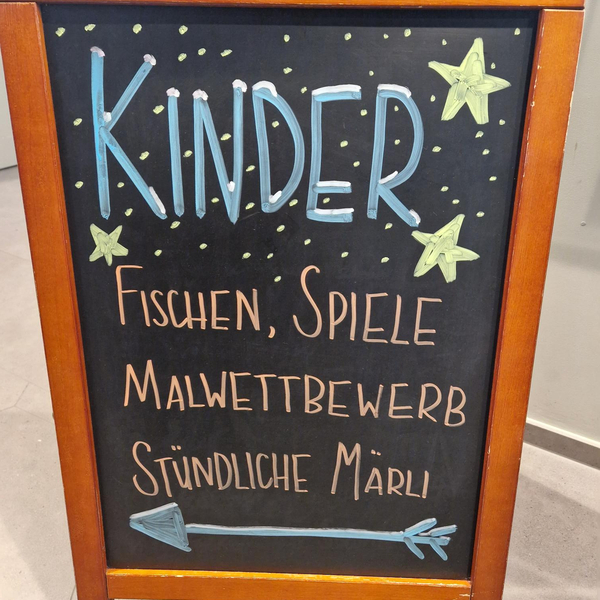 KINDER
FISCHEN, SPIELE
MALWETTBEWERB
STÜNDLICHE MÄRLI